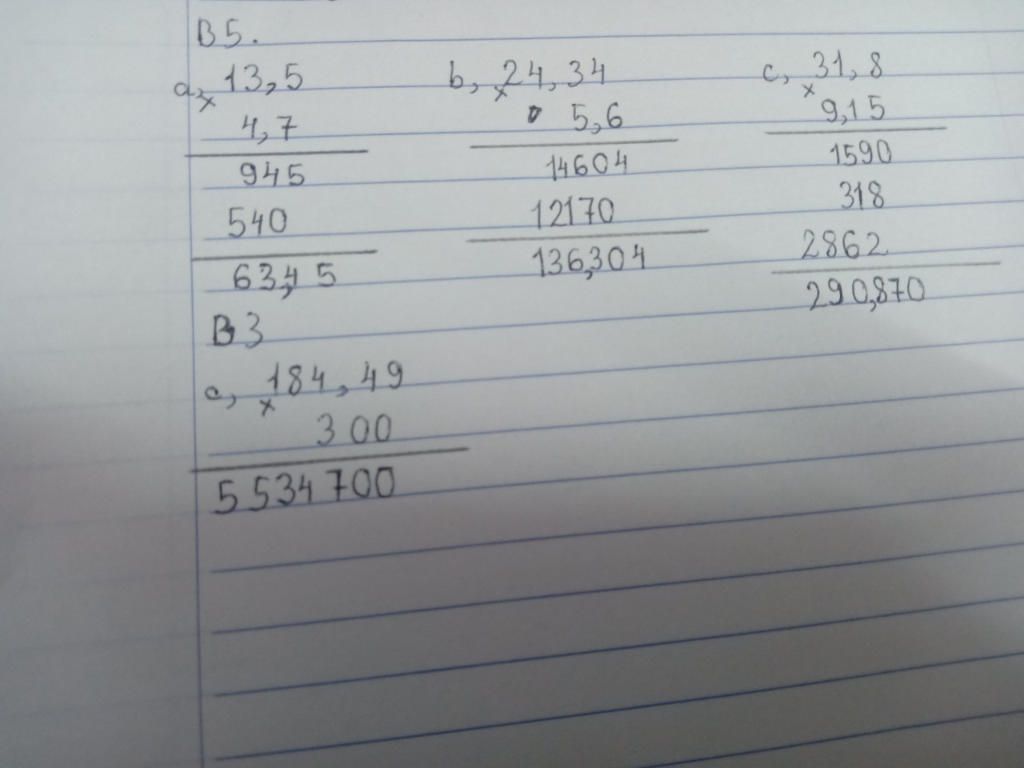 B5.
a, 13,5 b, 24,34 c, 31,8
x 4,7 x 5,6 x 9,15
945 14604 1590
540 12170 318
63,45 136,304 2862
290,870
B3
c, 184,49
x 300
5534700